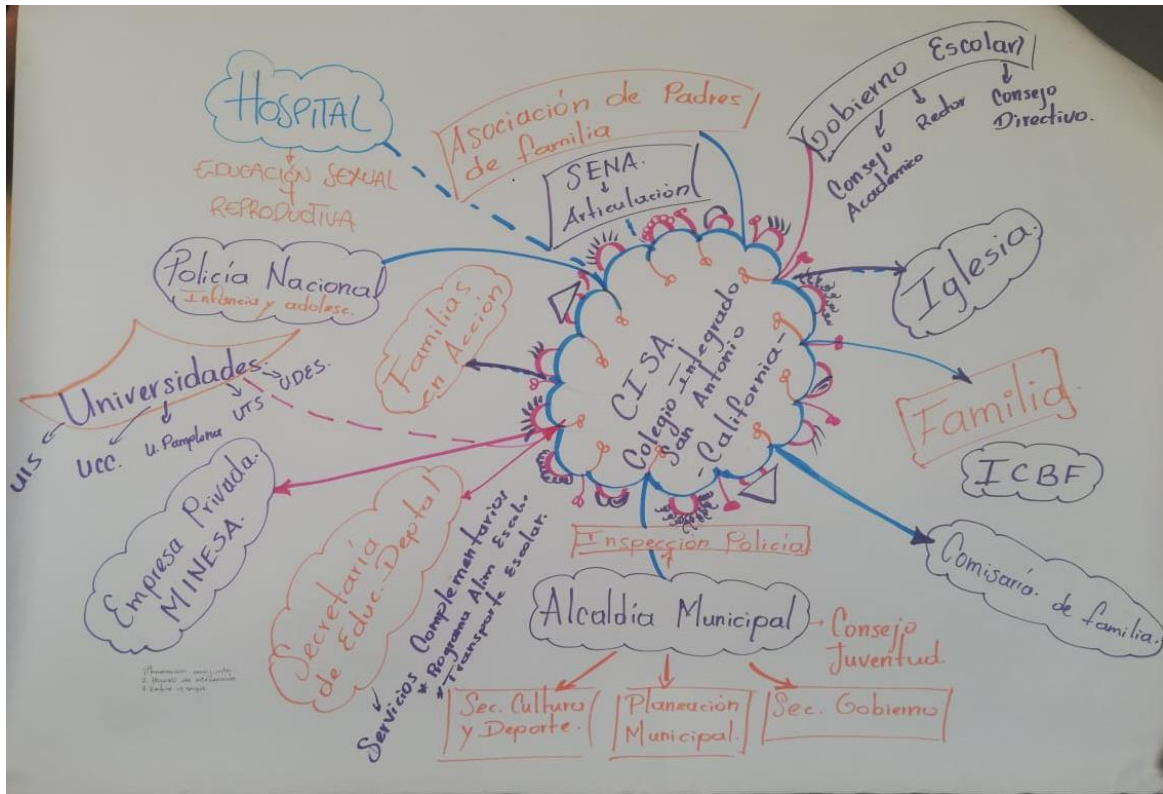 HOSPITAL
EDUCACIÓN SEXUAL
Y
REPRODUCTIVA
Asociación de Padres
de familia
SENA.
Articulación
Gobierno Escolar
Consejo
Académico
Rector
Consejo
Directivo.
Policía Nacional
Infancia y adolesc.
Familias
en Acción
Iglesia.
Universidades.
UIS
UCC.
U. Pamplona
UTS
UDES.
CISA.
Colegio Integrado
San Antonio
-California-
Familia
ICBF
Comisaría de familia.
Empresa Privada.
MINESA.
Secretaría
de Educ. Deptal
Servicios Complementarios
* Programa Alim Escol.
* Transporte Escolar.
Inspección Policía
Alcaldía Municipal
Consejo
Juventud.
Sec. Cultura
y Deporte.
Planeación
Municipal.
Sec. Gobierno